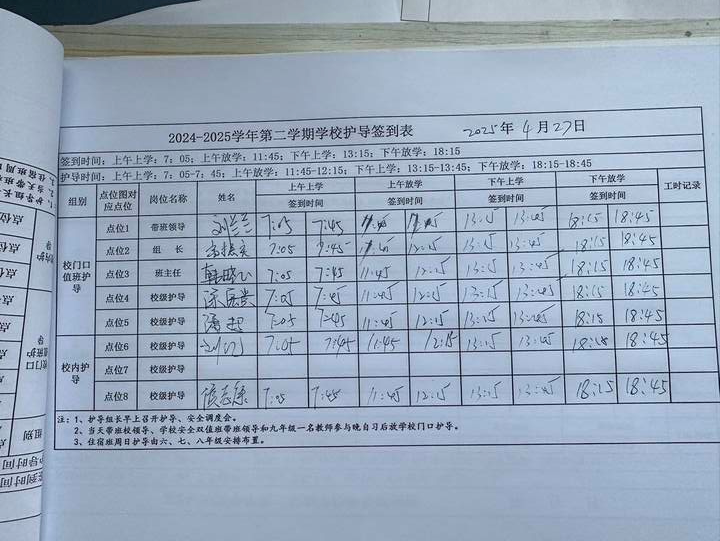 2024-2025学年第二学期学校护导签到表 2025年4月27日
签到时间：上午上学：7：05；上午放学：11:45；下午上学：13:15；下午放学：18:15
护导时间：上午上学：7:05-7；45，上午放学：11:45-12:15；下午上学：13:15-13:45；下午放学：18:15-18:45
组别 点位图对应点位 岗位名称 姓名 上午上学 上午放学 下午上学 下午放学 工时记录
签到时间 签到时间 签到时间 签到时间
校门口值班护导
点位1 带班领导 刘兰兰 7:05 7:45 13:15 13:45 18:15 18:45
点位2 组 长 7:05 7:45 12:15 13:15 13:45 18:15 18:45
点位3 班主任 7:05 7:45 11:45 12:15 13:15 13:45 18:15 18:45
点位4 校级护导 7:05 7:45 11:45 12:15 13:15 13:45 18:15 18:45
点位5 校级护导 7:05 7:45 11:45 12:15 13:15 13:45 18:15 18:45
校内护导
点位6 校级护导 7:05 7:45 11:45 12:15 13:15 13:45 18:15 18:45
点位7 校级护导
点位8 校级护导 7:05 7:45 11:45 12:15 13:15 13:45 18:15 18:45
注：1、护导组长早上召开护导、安全调度会。
2、当天带班校领导、学校安全双值班带班领导和九年级一名教师参与晚自习后放学校门口护导。
3、住宿班周日护导由六、七、八年级安排布置。